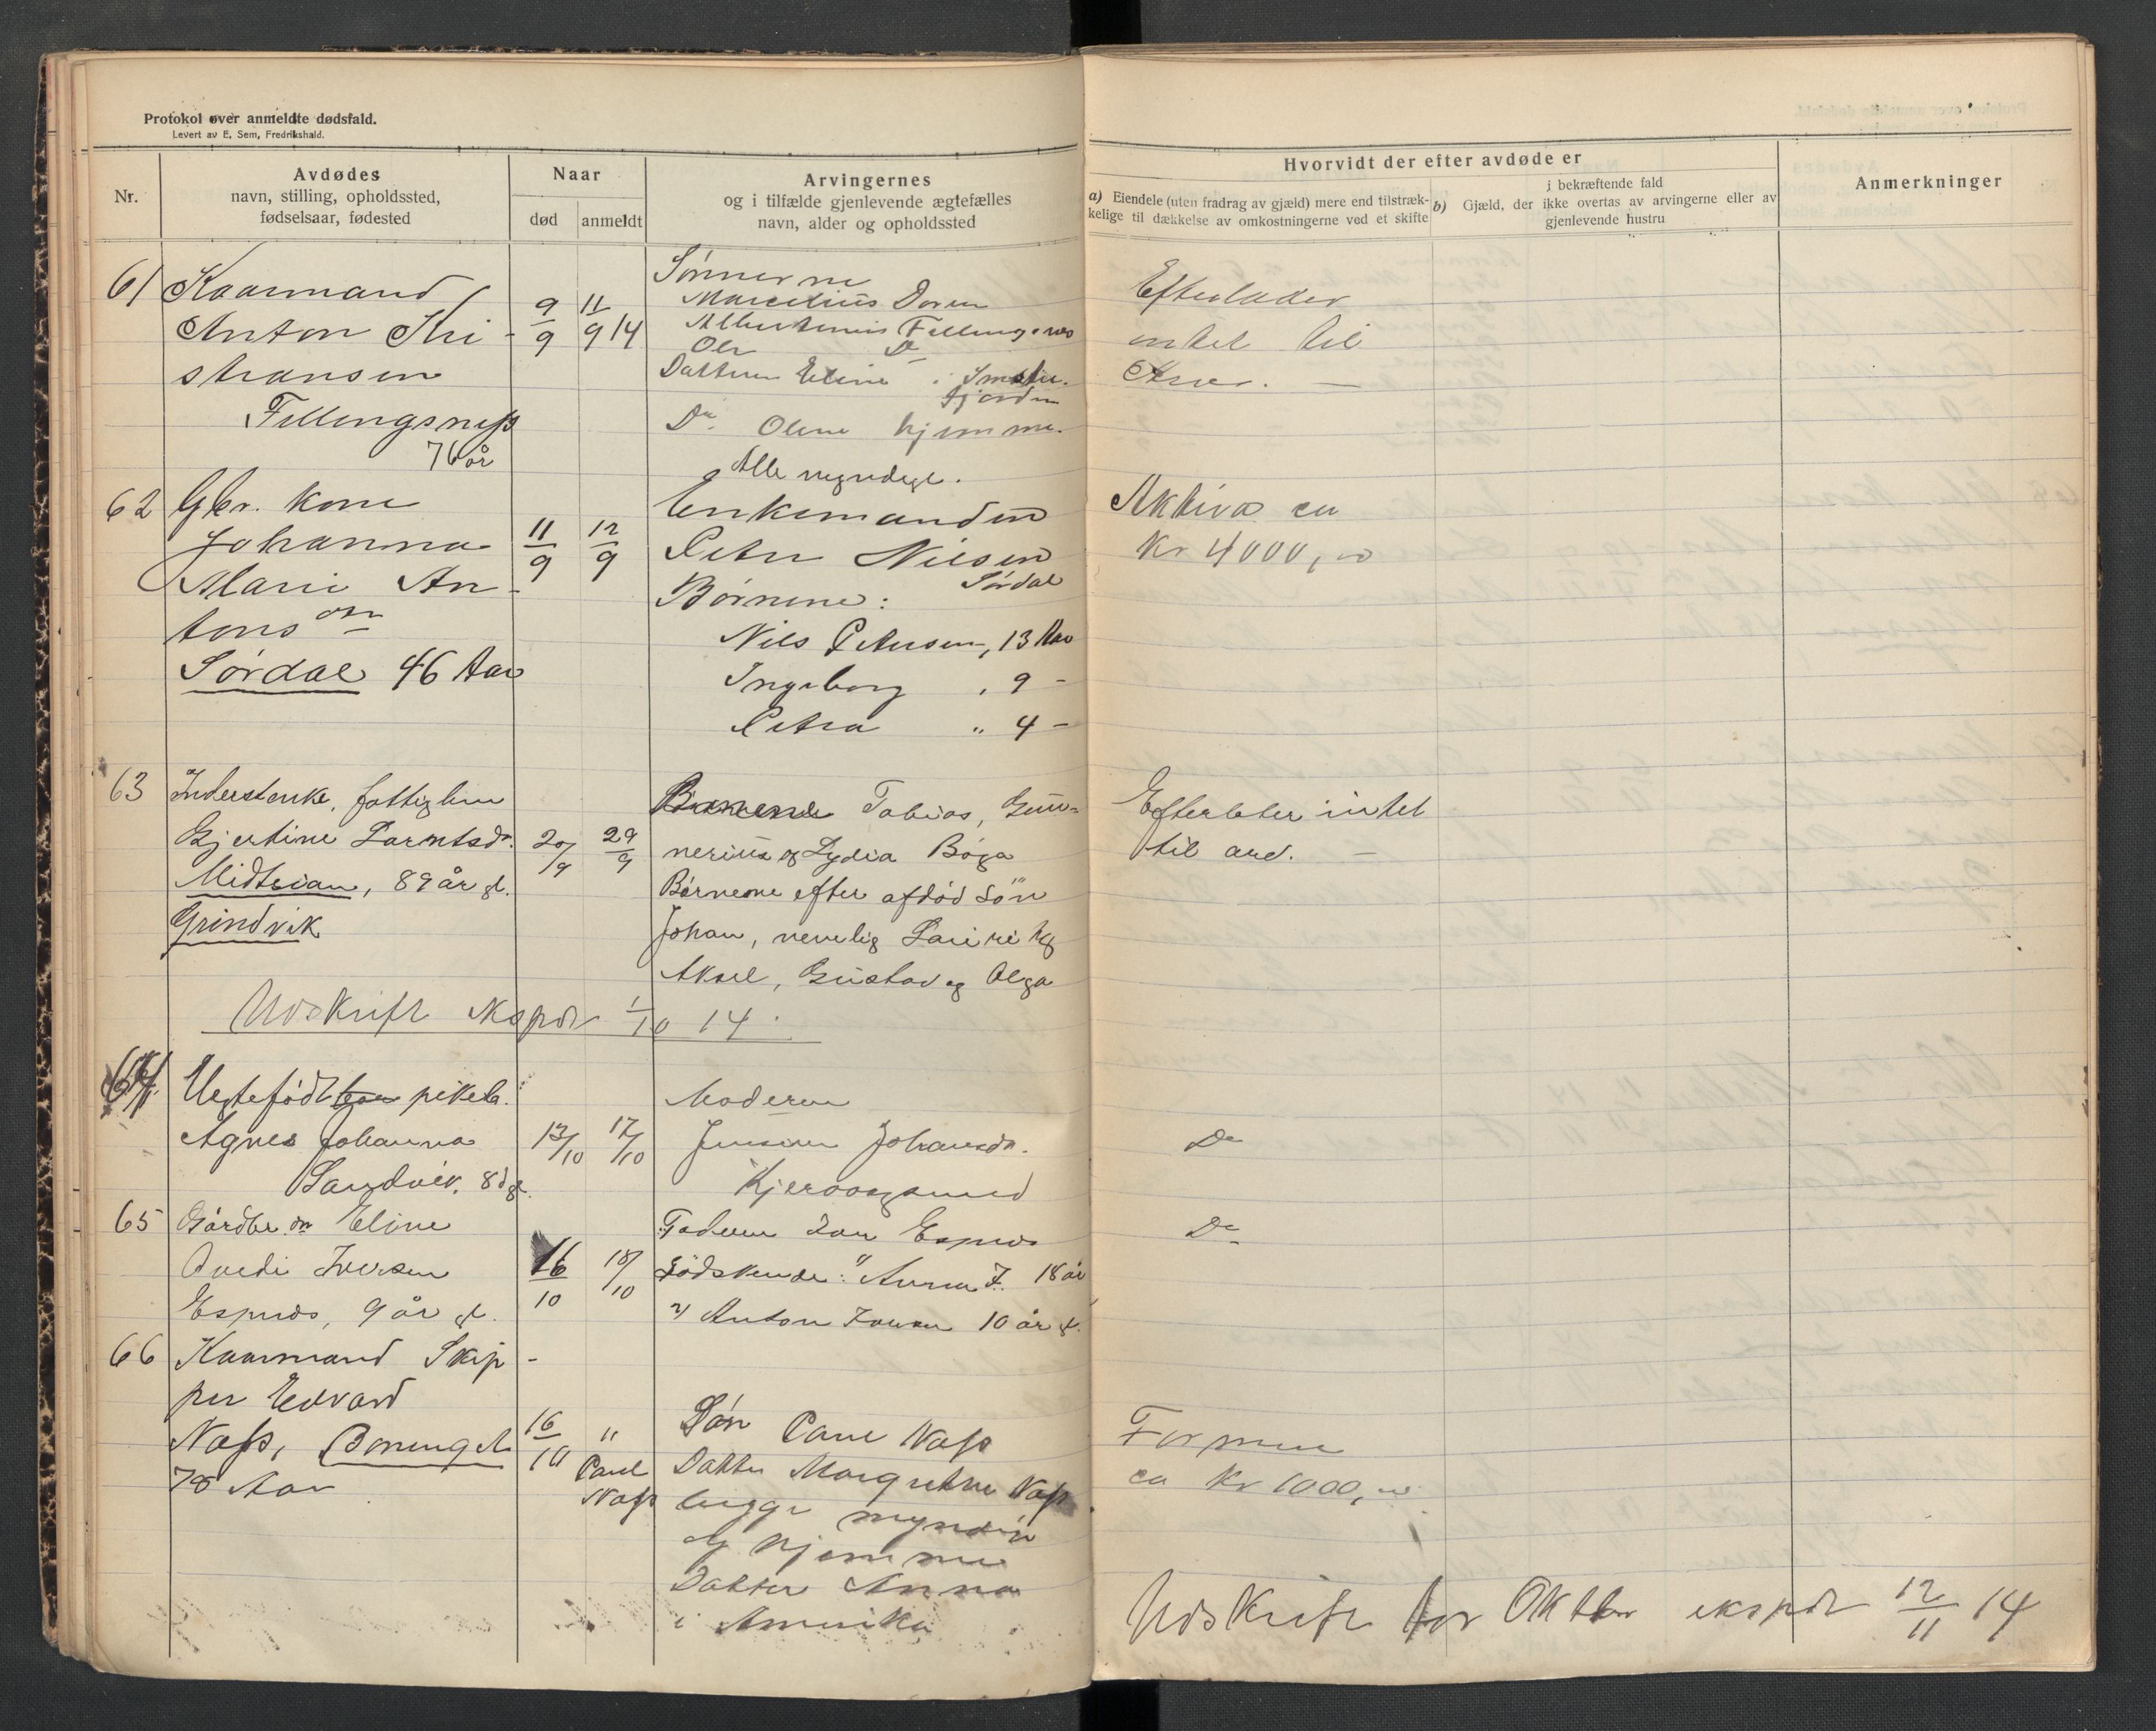 Protokol over anmeldte dødsfald.
Levert av E. Sem, Fredrikshald.
Nr.
Avdødes
navn, stilling, opholdssted,
fødselsaar, fødested
Naar
død
anmeldt
Arvingernes
og i tilfælde gjenlevende ægtefælles
navn, alder og opholdssted
Hvorvidt der efter avdøde er
a) Eiendele (uten fradrag av gjæld) mere end tilstræk-
kelige til dækkelse av omkostningerne ved et skifte
b) Gjæld, der ikke overtas av arvingerne eller av
i bekræftende fald
gjenlevende hustru
Anmerkninger
61 Kaarmand
Anton Kri-
stiansen
Fillingsness
76 år
9/9
11/9 14
Sønnerne
Marcelius Doren
Albertinus Fillingsnes
Ole Do
Datteren Eline i Snille-
fjorden
Do Oline hjemme.
Alle myndige.
Efterlader
intet til
Arv. —
62 Gbr. kone
Johanna
Marie An-
tonsen
Sørdal 46 Aar
11/9
12/9
Enkemanden
Peter Nilsen
Sørdal
Børnene:
Nils Petersen, 13 Aar
Ingeborg , 9 -
Petra " 4 -
Aktiva ca
Kr 4000,00
63 Inderstenke, fattiglem
Gjertine Larntsdr.
Midtsian, 89 år gl.
Grindvik
20/9
29/9
Børnene Tobias, Gun-
nerius og Lydia Bøga
Børnene efter afdød søn
Johan, nemlig Laurits
Aksel, Gustav og Olga
Efterlater intet
til arv. —
Udskrift expdt 1/10 14.
64. Uegtefødt pikeb.
Agnes Johanna
Sandvik, 8 d gl.
13/10
17/10
Moderen
Jensine Johansdr.
Do
65 Gårdbr. dn Eline
Ovedi Iversen
Espnes, 9 år gl.
16/10
18/10
Faderen Iver Espnes
Sødskende: 1) Anna I. 18 år
2) Anton Iversen 10 år gl.
Do
66 Kaarmand Skip-
per Edvard
Næss, Boringst
78 Aar
16/10
"
Paul
Næss
Søn Paul Næss
Datter Margrethe Næss
begge myndige
og hjemme
Datter Anna
i Amerika
Formue
ca Kr 1000,00
Udskrift for Oktbr ekspdt 12/11 14